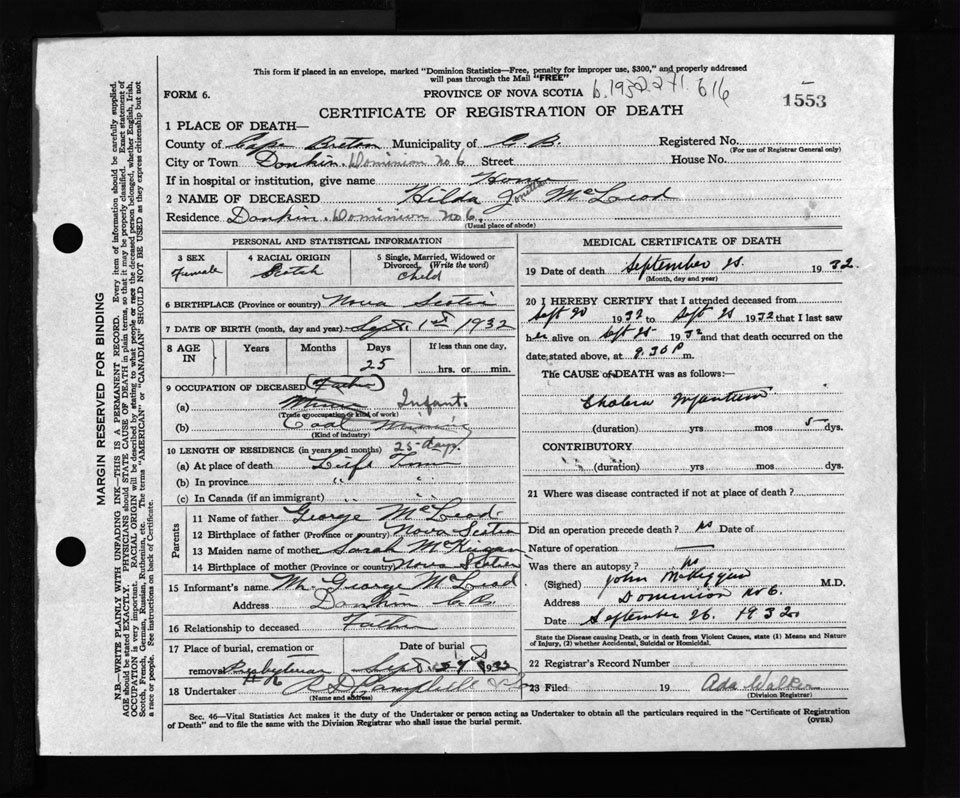 This form if placed in an envelope, marked "Dominion Statistics—Free, penalty for improper use, $300," and properly addressed
will pass through the Mail "FREE"
FORM 6. PROVINCE OF NOVA SCOTIA b. 1932-271. 616
1553
CERTIFICATE OF REGISTRATION OF DEATH
1 PLACE OF DEATH—
County of Cape Breton Municipality of C. B. Registered No.
(For use of Registrar General only)
City or Town Donkin. Dominion No 6 Street House No.
If in hospital or institution, give name Home
2 NAME OF DECEASED Hilda McLeod
Residence Donkin. Dominion No 6.
(Usual place of abode)
PERSONAL AND STATISTICAL INFORMATION
3 SEX 4 RACIAL ORIGIN 5 Single, Married, Widowed or
Divorced. (Write the word)
Female Scotch Child
6 BIRTHPLACE (Province or country) Nova Scotia
7 DATE OF BIRTH (month, day and year) Sept. 1st 1932
8 AGE IN Years Months Days If less than one day,
25 hrs. or min.
9 OCCUPATION OF DECEASED (Father)
(a) Miner Infant.
(Trade or occupation or kind of work)
(b) Coal Mining
(Kind of industry)
10 LENGTH OF RESIDENCE (in years and months) 25-days.
(a) At place of death Life Time
(b) In province " "
(c) In Canada (if an immigrant) " "
Parents
11 Name of father George McLeod.
12 Birthplace of father (Province or country) Nova Scotia
13 Maiden name of mother Sarah McKeigan
14 Birthplace of mother (Province or country) Nova Scotia
15 Informant's name Mr. George McLeod
Address Donkin C.B.
16 Relationship to deceased Father
17 Place of burial, cremation or Date of burial
removal Presbyterian Sept. 1932
18 Undertaker
(Name and address)
MEDICAL CERTIFICATE OF DEATH
19 Date of death September 25. 1932.
(Month, day and year)
20 I HEREBY CERTIFY that I attended deceased from
Sept 20 1932 to Sept 25 1932 that I last saw
her alive on Sept 25 1932 and that death occurred on the
date stated above, at 9.30 P. m.
The CAUSE of DEATH was as follows:—
Cholera Infantum
(duration) yrs mos 5 dys.
CONTRIBUTORY
(duration) yrs mos dys.
21 Where was disease contracted if not at place of death?
Did an operation precede death? No Date of
Nature of operation —
Was there an autopsy? No
(Signed) John M.D.
Address Dominion No 6.
Date September 26. 1932
State the Disease causing Death, or in death from Violent Causes, state (1) Means and Nature
of Injury, (2) whether Accidental, Suicidal or Homicidal.
22 Registrar's Record Number
23 Filed 19 Ada Walker
(Division Registrar)
Sec. 46—Vital Statistics Act makes it the duty of the Undertaker or person acting as Undertaker to obtain all the particulars required in the "Certificate of Registration
of Death" and to file the same with the Division Registrar who shall issue the burial permit. (OVER)
MARGIN RESERVED FOR BINDING
N.B.—WRITE PLAINLY WITH UNFADING INK—THIS IS A PERMANENT RECORD. Every item of information should be carefully supplied.
AGE should be stated EXACTLY. PHYSICIANS should STATE CAUSE OF DEATH in plain terms, so that it may be properly classified. Exact statement of
OCCUPATION is very important. RACIAL ORIGIN will be described by stating to what people or race the deceased person belonged, whether English, Irish,
Scotch, French, German, Russian, Ruthenian, etc. The terms "AMERICAN" or "CANADIAN" SHOULD NOT BE USED as they express citizenship but not
a race or people. See instructions on back of Certificate.